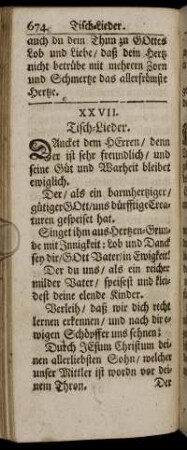 674. Tisch-Lieder.
auch du dem Thun zu GOttes
Lob und Liebe/ daß dein Hertz
nicht betrübe mit mehrern Zorn
und Schmertze das allerfrömste
Hertze.
XXVII.
Tisch-Lieder.
DAncket dem HErren/ denn
Er ist sehr freundlich/ und
seine Güt und Warheit bleibet
ewiglich.
Der/ als ein barmhertziger/
gütiger GOtt/ uns dürfftige Crea-
turen gespeiset hat.
Singet ihm aus Hertzen-Grun-
de mit Innigkeit: Lob und Danck
sey dir/ Gott Vater/ in Ewigkeit!
Der du uns/ als ein reicher
milder Vater/ speisest und klei-
dest deine elende Kinder.
Verleih/ daß wir dich recht
lernen erkennen/ und nach dir e-
wigen Schöpffer uns sehnen;
Durch JEsum Christum dei-
nen allerliebsten Sohn/ welcher
unser Mittler ist wordn vor dei-
nem Thron.
Der